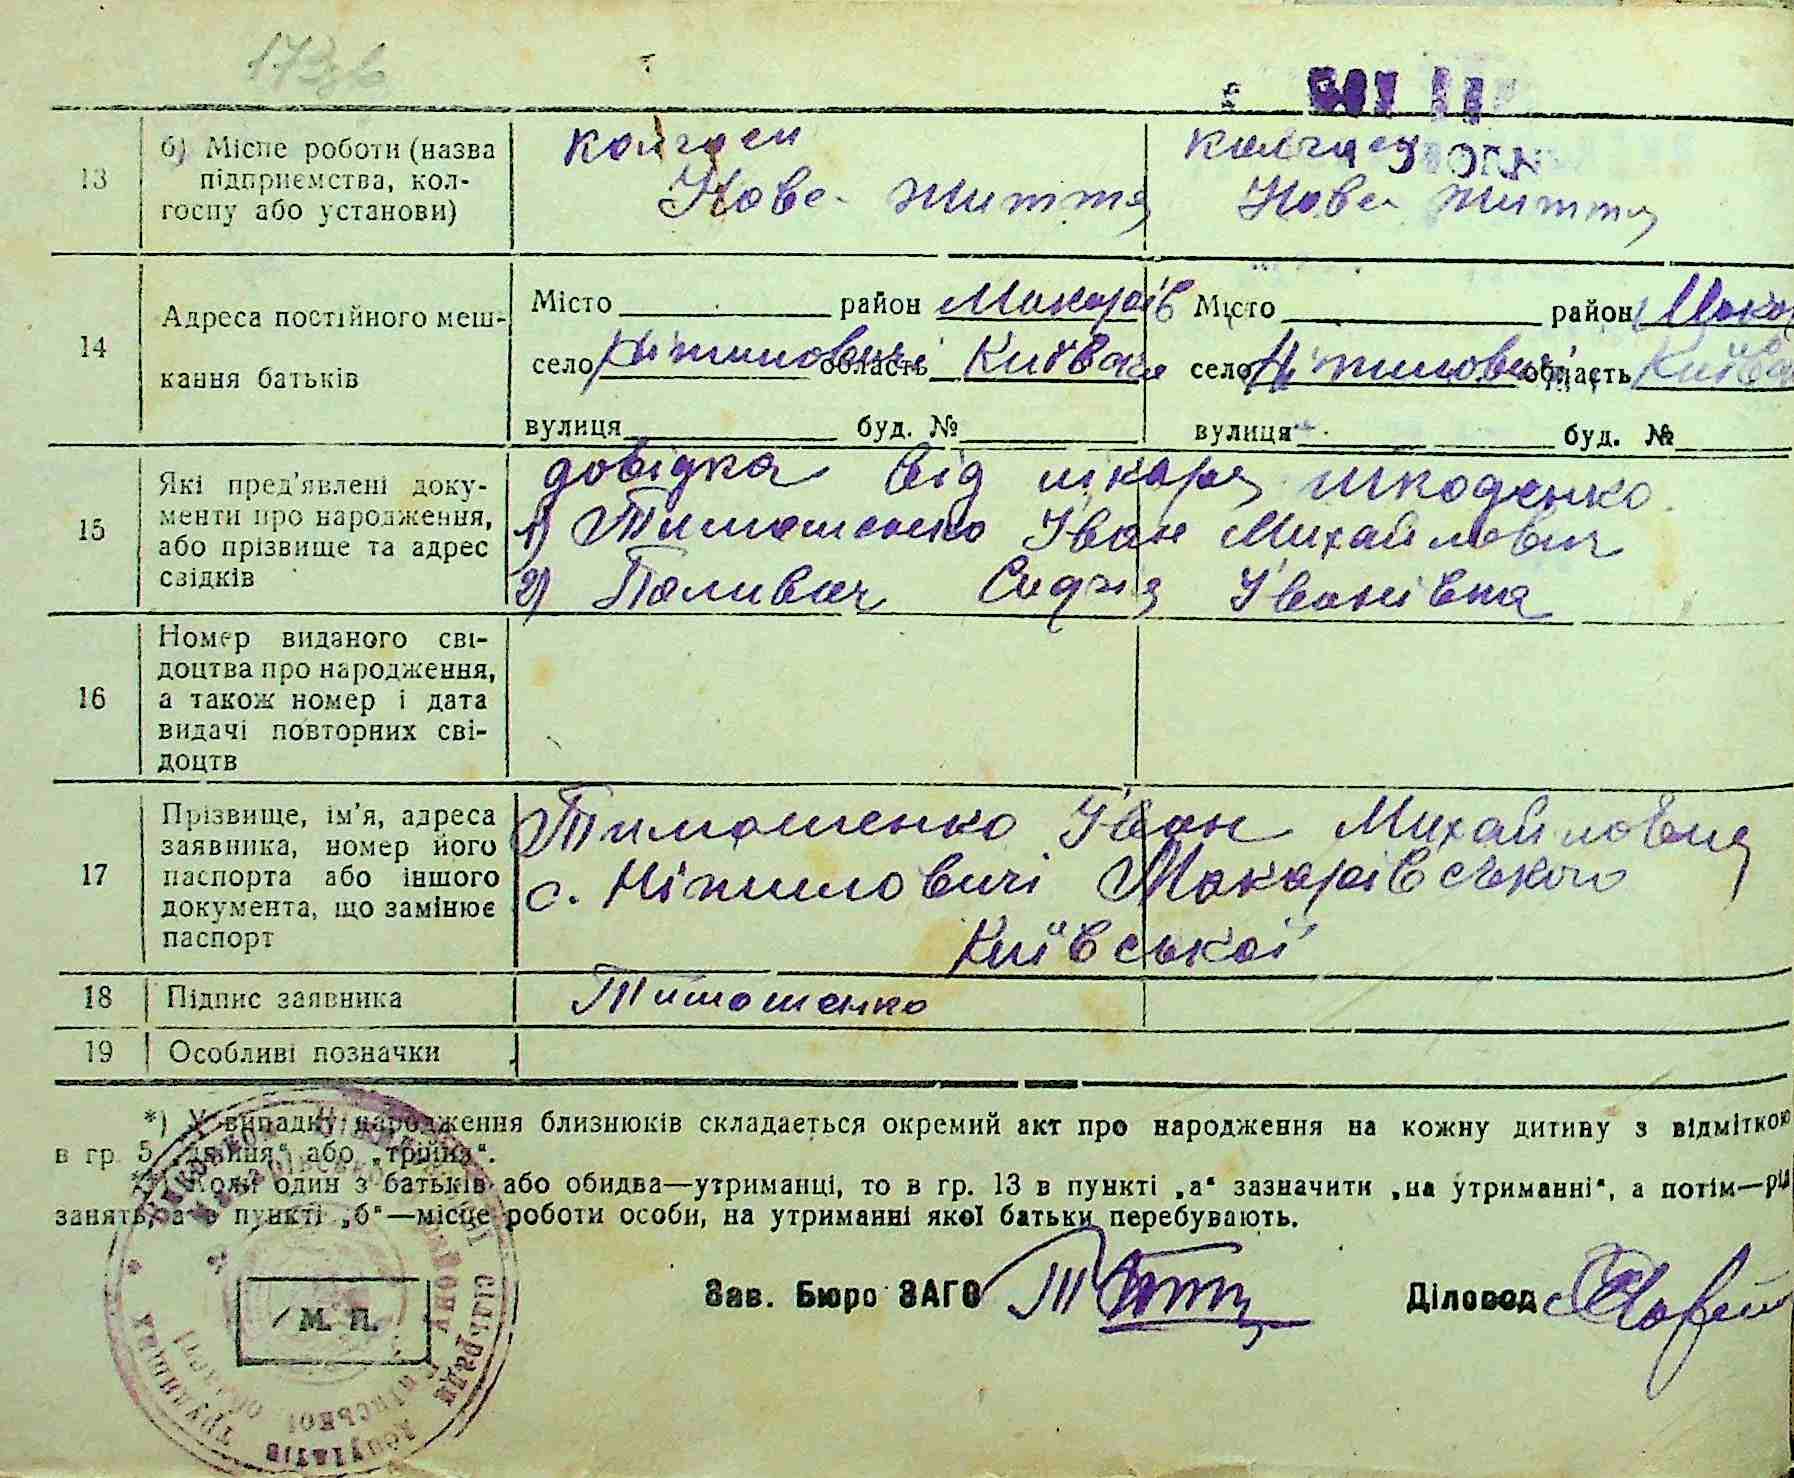 173зв
13
б) Місце роботи (назва
підприємства, кол-
госпу або установи)
колгосп
Нове життя
колгосп
Нове життя
14
Адреса постійного меш-
кання батьків
Місто район Макарів
село Ніжиловичі область Київська
вулиця буд. №
Місто район Мака
село Ніжиловичі область Київсь
вулиця буд. №
15
Які пред'явлені доку-
менти про народження,
або прізвище та адрес
свідків
довідка від лікаря Шкоденко
1) Тимошенко Іван Михайлович
2) Поливач Івановівна
16
Номер виданого сві-
доцтва про народження,
а також номер і дата
видачі повторних сві-
доцтв
17
Прізвище, ім'я, адреса
заявника, номер його
паспорта або іншого
документа, що замінює
паспорт
Тимошенко Іван Михайлович
с. Ніжиловичі Макарівського
Київської
18
Підпис заявника
Тимошенко
19
Особливі позначки
*) У випадку народження близнюків складається окремий акт про народження на кожну дитину з відміткою
в гр. 5 „двійня“ або „трійня“.
**) Коли один з батьків або обидва—утриманці, то в гр. 13 в пункті „а“ зазначити „на утриманні“, а потім—рід
занять, а в пункті „б“—місце роботи особи, на утриманні якої батьки перебувають.
Зав. Бюро ЗАГС
Діловод
М. П.